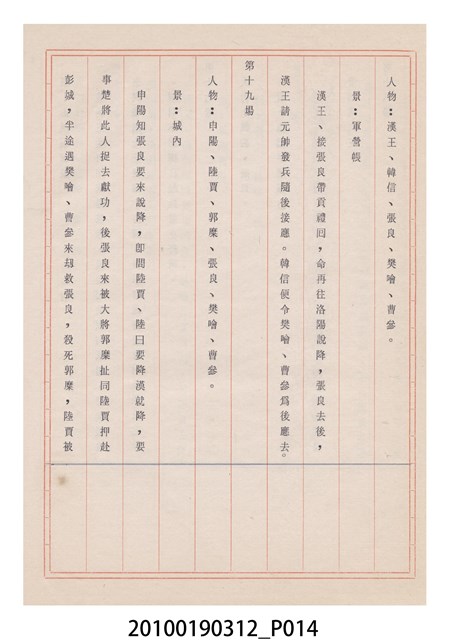 人物：漢王、韓信、張良、樊噲、曹參。
景：軍營帳
漢王、接張良帶貢禮囘，命再往洛陽說降，張良去後，
漢王請元帥發兵隨後接應。韓信便令樊噲、曹參爲後應去。
第十九場
人物：申陽、陸賈、郭糜、張良、樊噲、曹參。
景：城內
申陽知張良要來說降，即問陸賈、陸曰要降漢就降，要
事楚將此人捉去獻功，後張良來被大將郭糜扯同陸賈押赴
彭城，半途遇樊噲、曹參來刼救張良，殺死郭糜，陸賈被
20100190312_P014